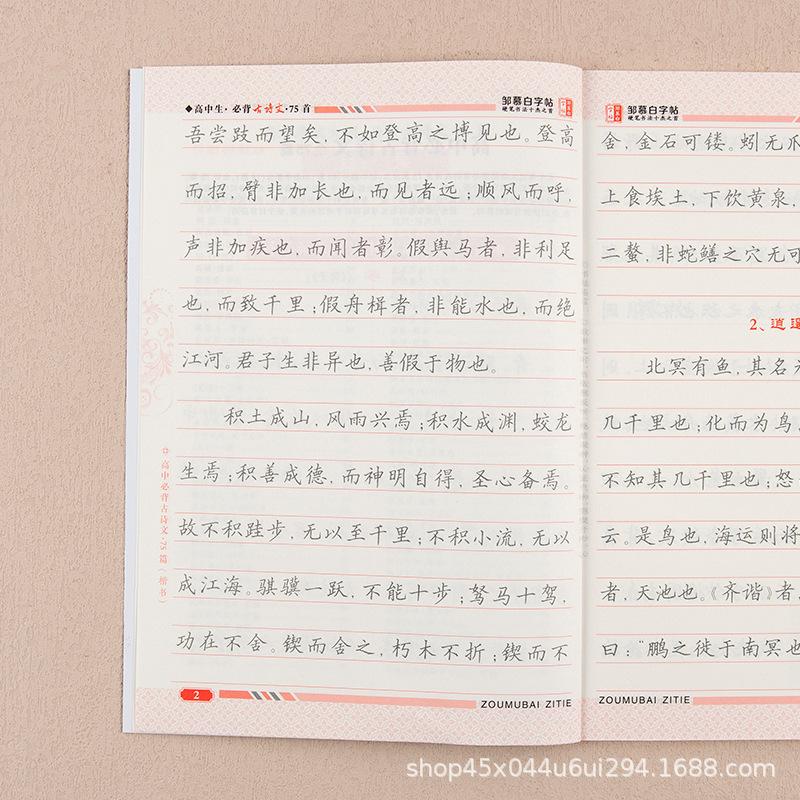 ◆高中生·必背古诗文·75首
邹慕白字帖
硬笔书法十杰之首
吾尝跂而望矣,不如登高之博见也。登高
而招,臂非加长也,而见者远;顺风而呼,
声非加疾也,而闻者彰。假舆马者,非利足
也,而致千里;假舟楫者,非能水也,而绝
江河。君子生非异也,善假于物也。
积土成山,风雨兴焉;积水成渊,蛟龙
生焉;积善成德,而神明自得,圣心备焉。
故不积跬步,无以至千里;不积小流,无以
成江海。骐骥一跃,不能十步;驽马十驾,
功在不舍。锲而舍之,朽木不折;锲而不
高中必背古诗文·75篇(楷书)
2
ZOUMUBAI ZITIE
邹慕白字帖
硬笔书法十杰之首
舍,金石可镂。蚓无爪
上食埃土,下饮黄泉,
二螯,非蛇鳝之穴无可
2、逍遥
北冥有鱼,其名
几千里也;化而为鸟,
不知其几千里也;怒
云。是鸟也,海运则将
者,天池也。《齐谐》者,
曰:“鹏之徙于南冥也
ZOUMUBAI ZITIE
shop45x044u6ui294.1688.com